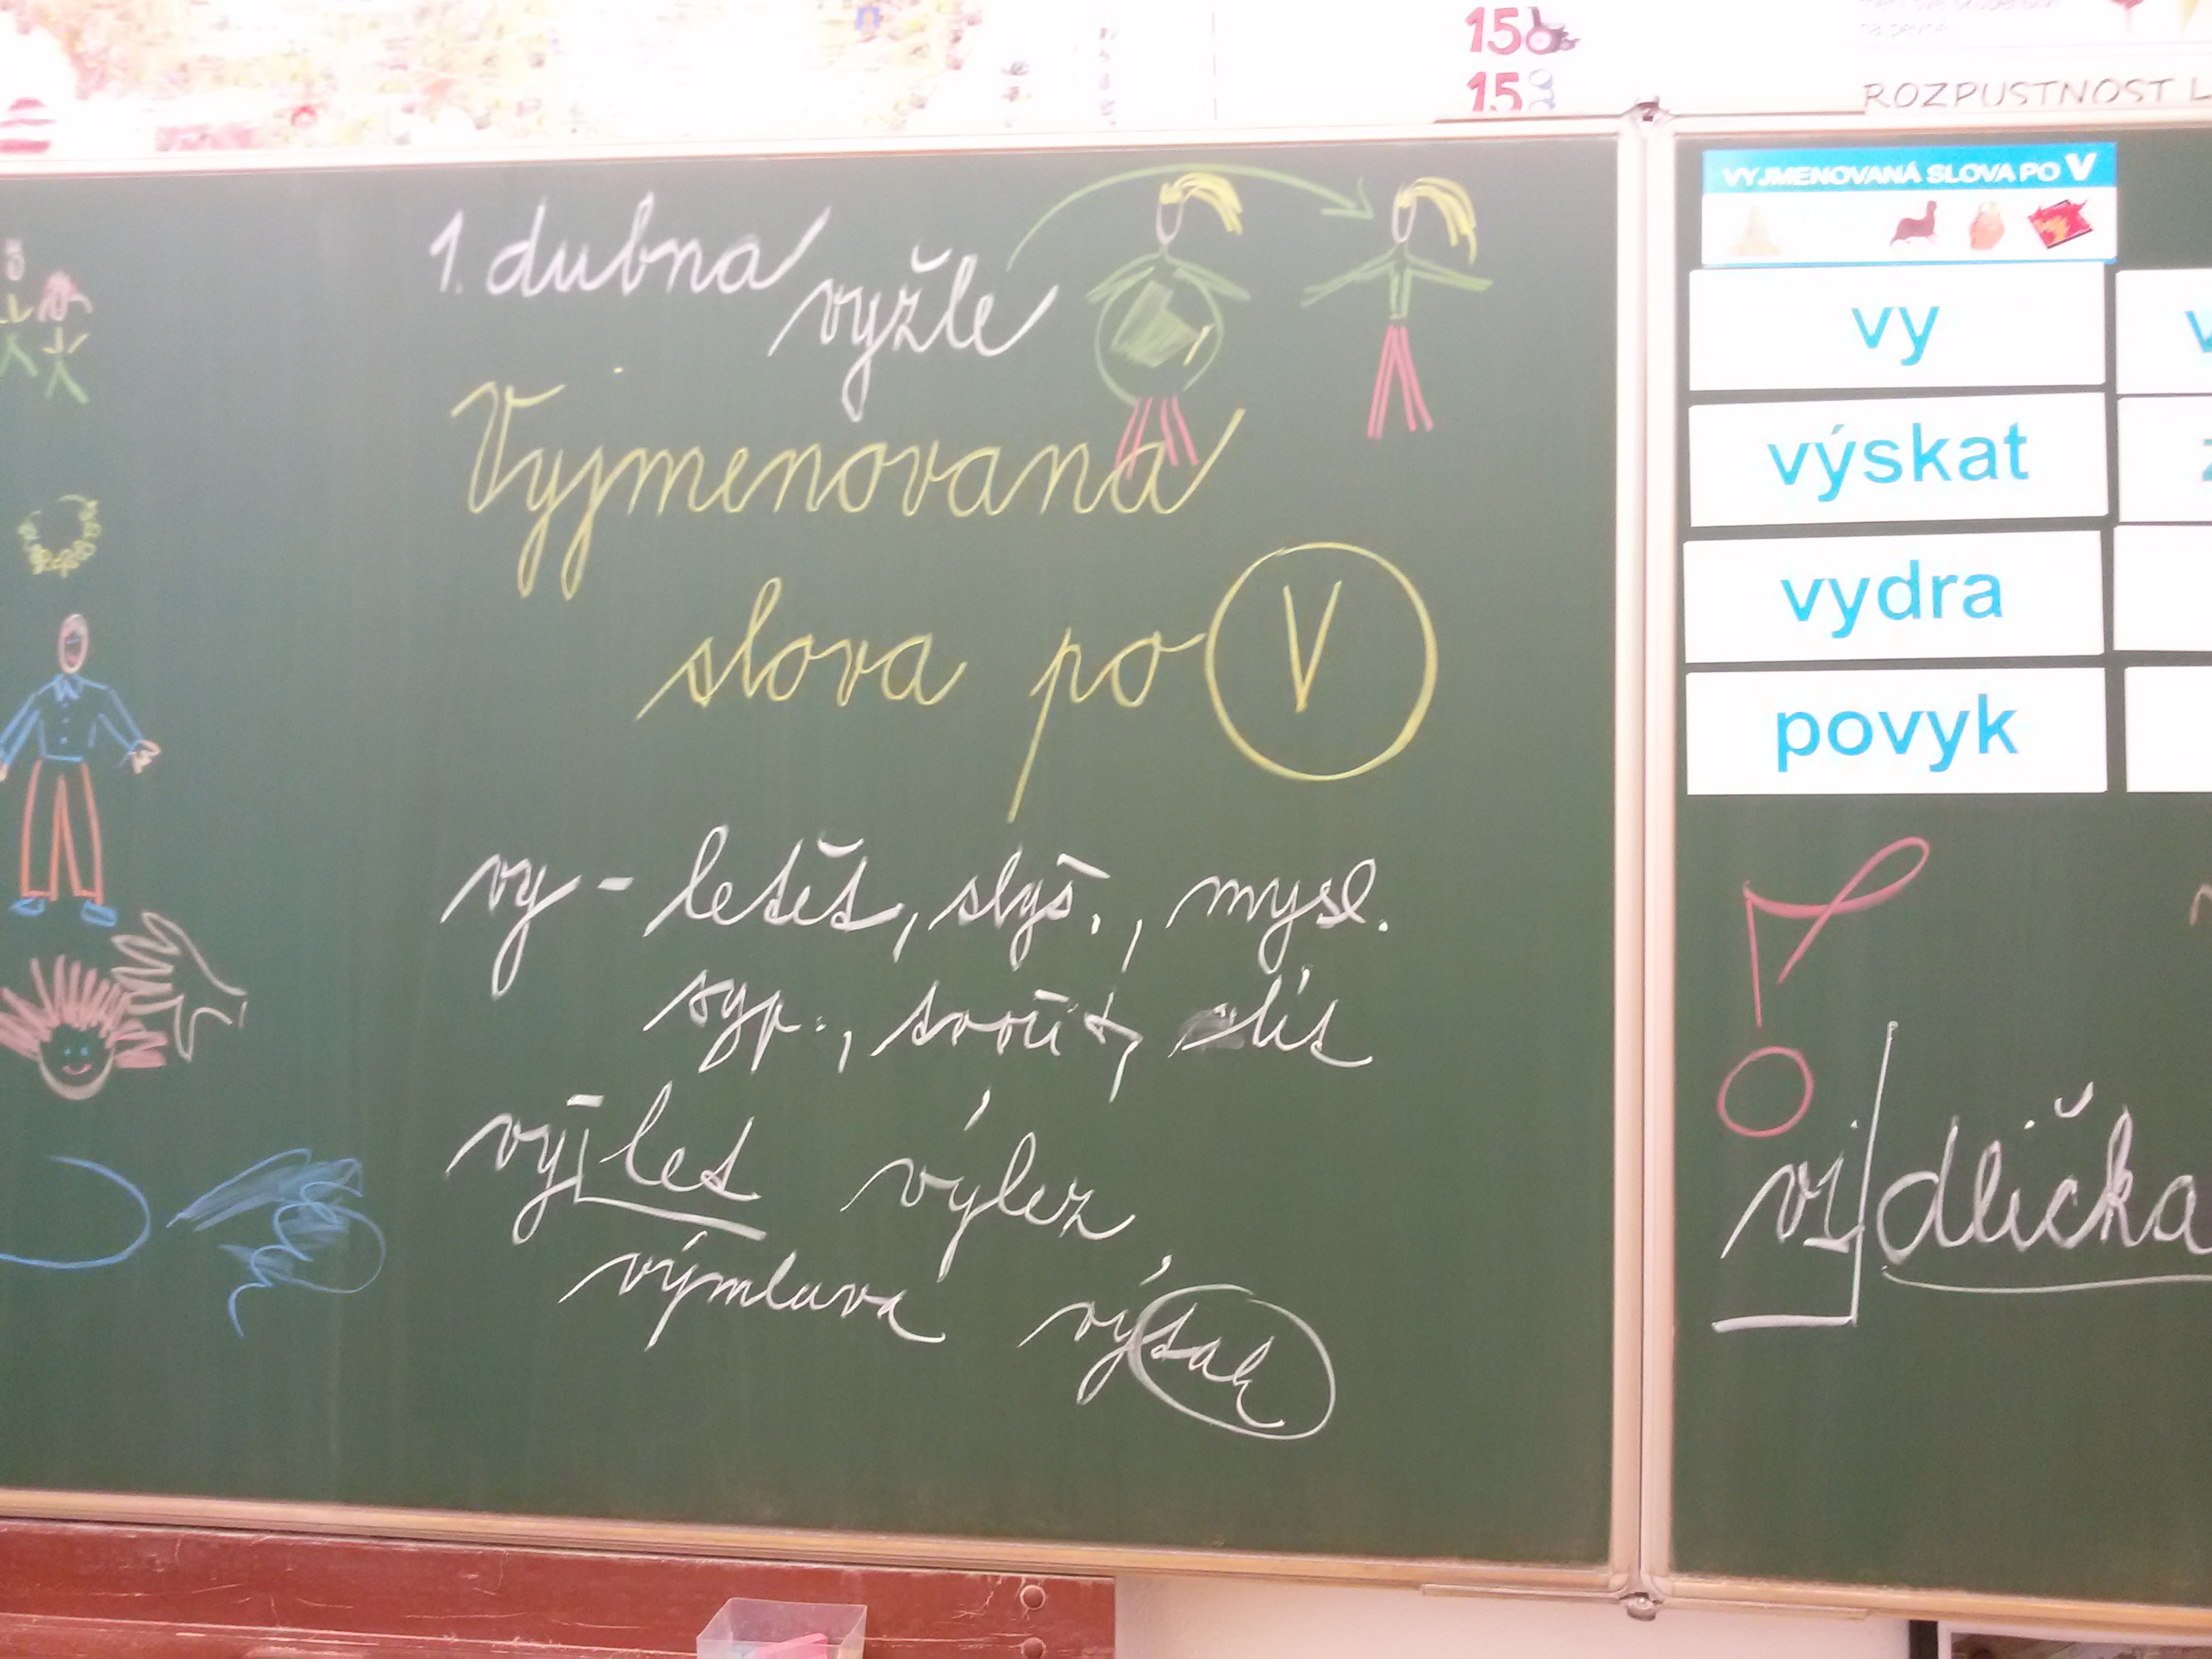 15
15
na pevné.
ROZPUSTNOST L
1. dubna
vyžle
Vyjmenovaná
slova po V
vy - letět, slyš., mysl.
syp., tvořit, lít
výlet výlez,
výmluva výtah
VYJMENOVANÁ SLOVA PO V
vy
výskat
vydra
povyk
vidlička